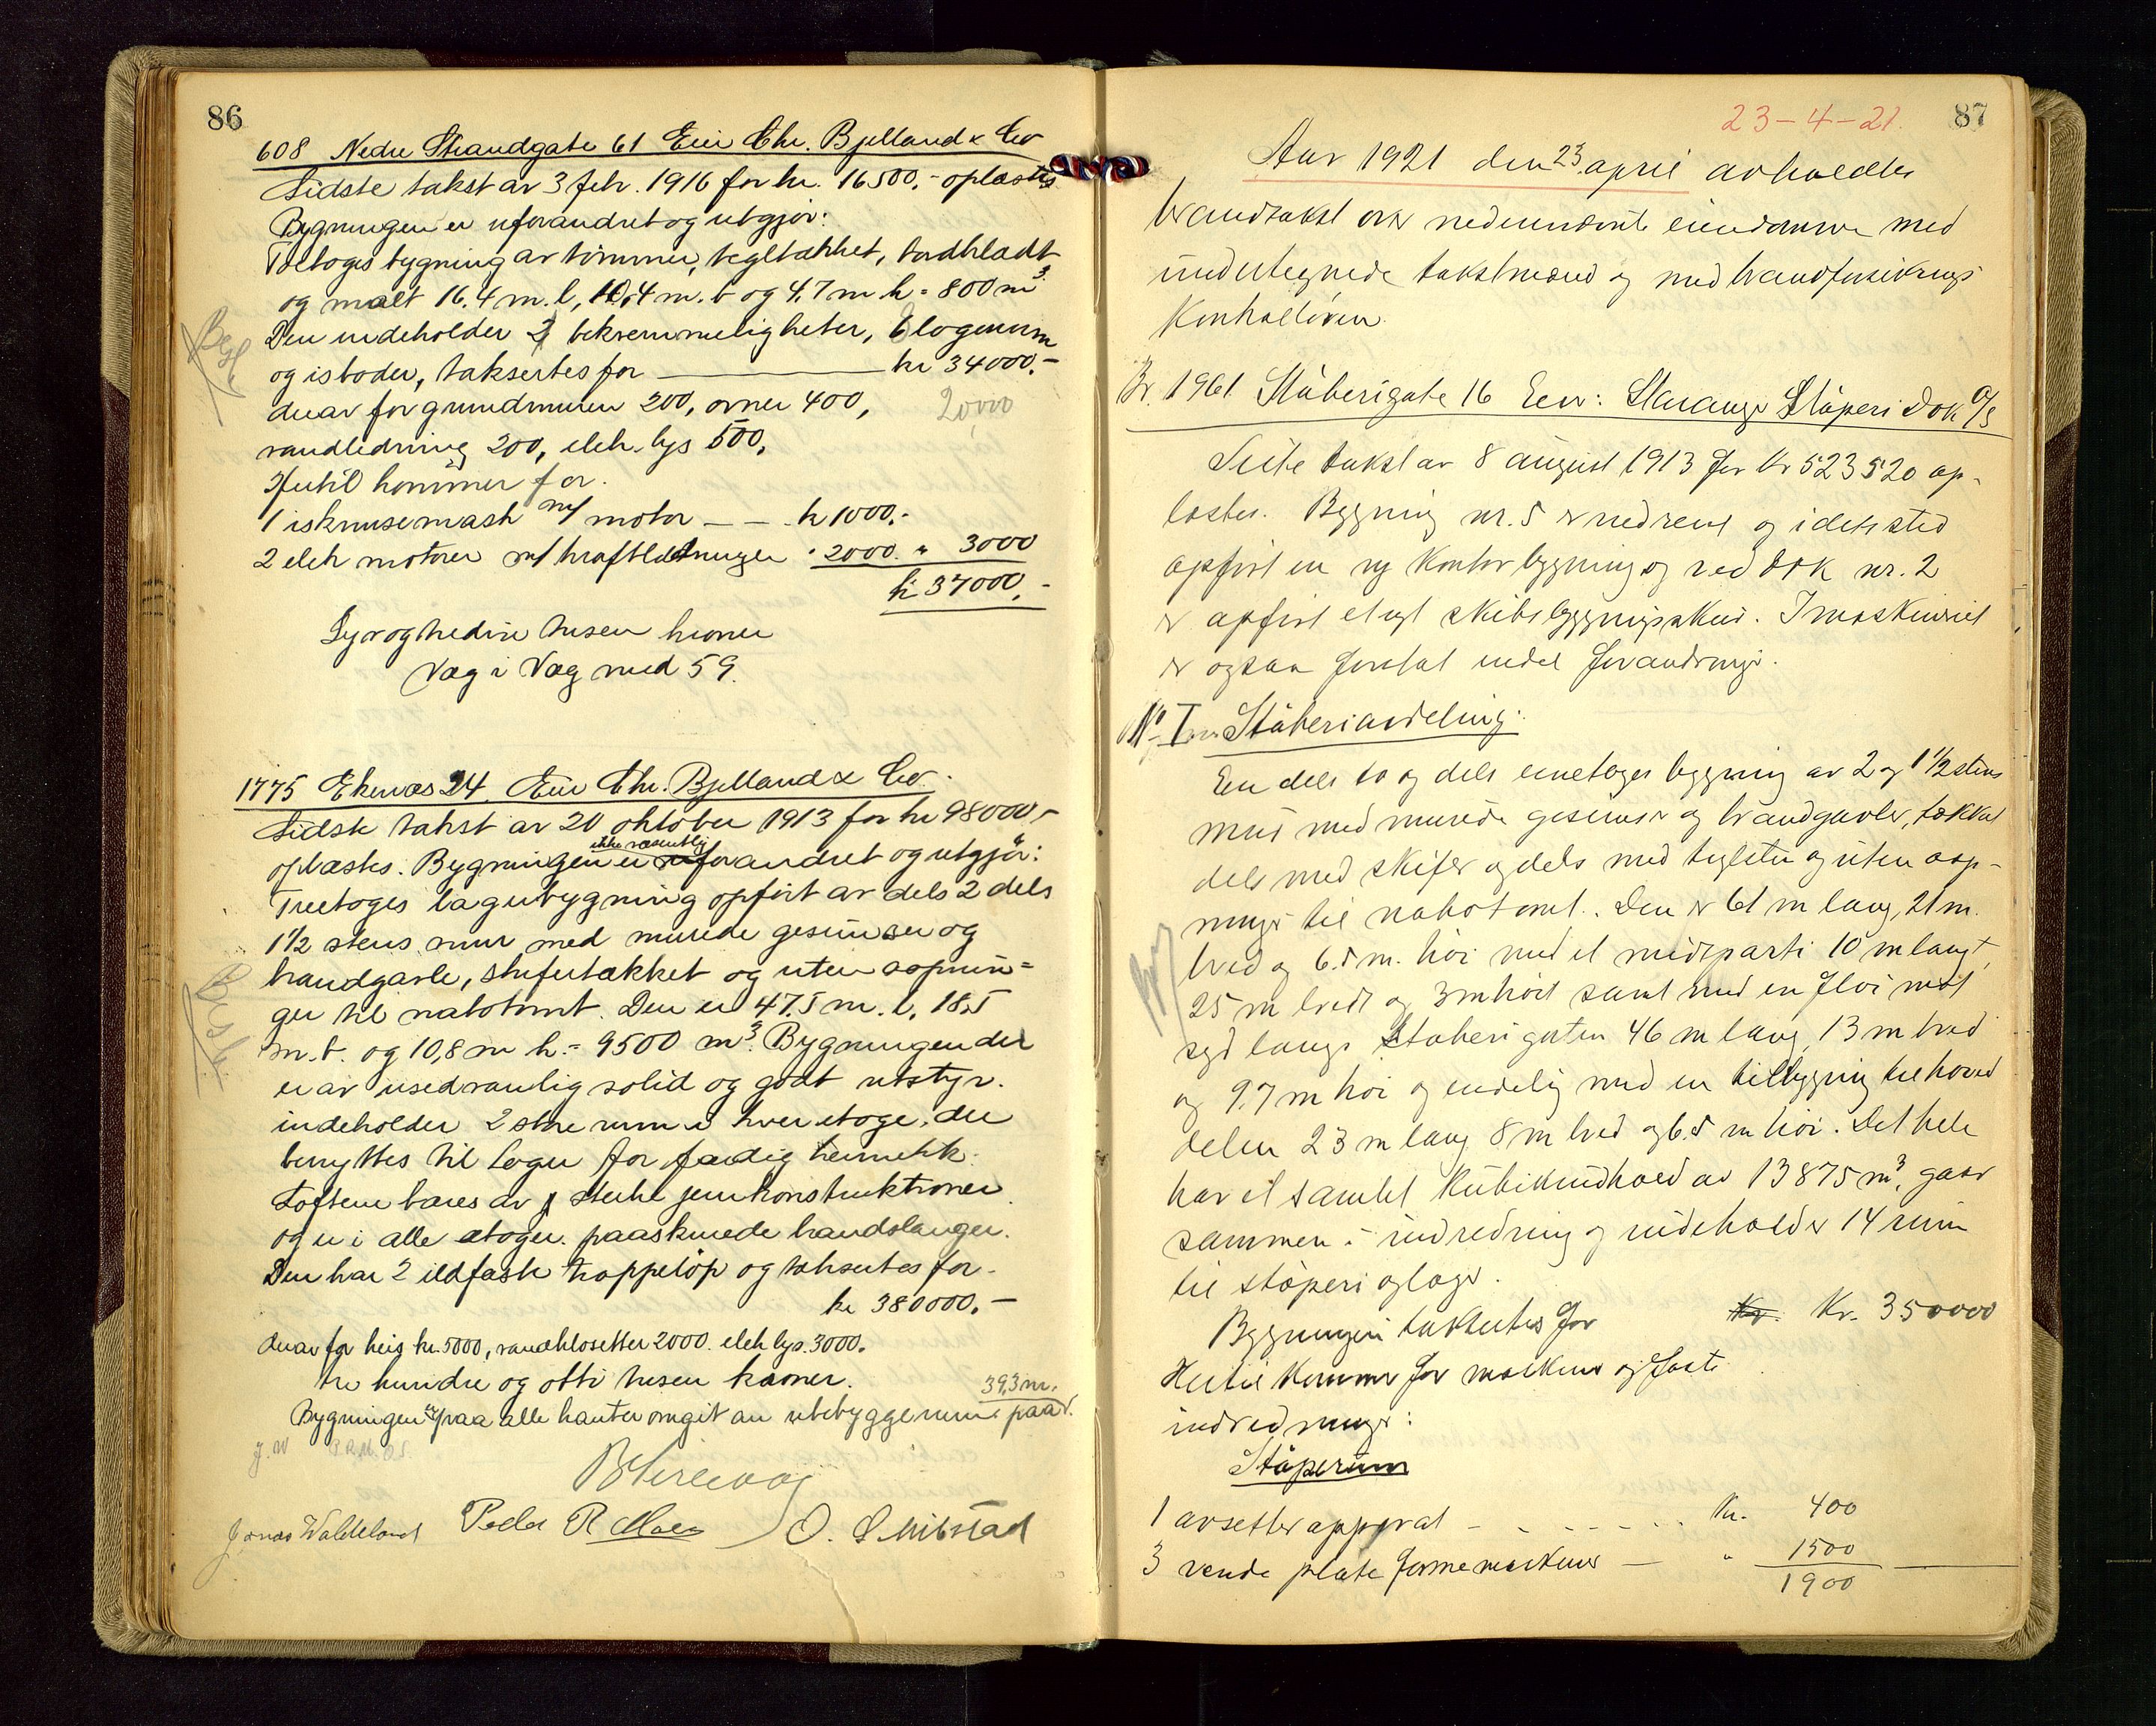 86
608 Nedre Strandgate 61 Eier Chr. Bjelland & Co
Sidste takst av 3 febr. 1916 for kr. 16500,- oplæstes
Bygningen er uforandret og utgjör:
Toetages bygning av tömmer, tegltækket, bordklædt
og malt 16.4 m. l, 10,4 m. b og 4,7 m h = 800 m³
Den indeholder 2 bekvemmeligheter, 6 lagerrum
og isboder, taksertes for — kr 34000,-
derav for grundmuren 200, ovner 400,
20000
vandledning 200, elek. lys 500,
Hertil kommer for
1 isknusemask m/ motor — — . kr 1000,-
2 elek motorer m/ kraftledninger " 2000 " 3000
kr 37000,-
Syv og tredive tusen kroner
Væg i Væg med 59.
1775 Ekenæs 24. Eier Chr. Bjelland & Co.
Sidste takst av 20 oktober 1913 for kr 98000,-
ikke væsentlig
oplæstes. Bygningen er uforandret og utgjör:
Treetages lagerbygning opfört av dels 2 dels
1½ stens mur med murede gesimser og
brandgavle, skifertækket og uten aapnin=
ger til nabotomt. Den er 47.5 m. l, 18,5
m. b. og 10,8 m h. = 9500 m³. Bygningen der
er av usedvanlig solid og godt utstyr.
indeholder 2 store rum i hver etage, der
benyttes til lager for færdig hermetik.
Loftene bæres av sterke jernkonstruktioner
og er i alle etager paaskruede brandslanger.
Den har 2 ildfaste trappelöp og taksertes for
kr 380000,-
derav for heis kr. 5000, vandklosetter 2000. elek lys. 3000.
tre hundre og otti tusen kroner.
39,3 m.
Bygningen er paa alle kanter omgit av ubebygge rum paa
J. W P. R. M. O. S.
Jonas Waldeland Peder R Moen O. S. Mibstad
23-4-21.
87
Aar 1921 den 23 april avholdtes
brandtakst over nedennævnte eiendomme med
undertegnede takstmænd og med brandforsikrings
Kontrolören
Br. 1961 Stöberigate 16 Eier: Stavanger Stöperi & Dok A/S
Siste takst av 8 august 1913 for Kr 523520 op-
læstes. Bygning nr. 5 er nedrevet og i dets sted
opfört en ny Kontorbygning og ved Dok nr. 2
er opfört et nyt skibsbygningsskur. I maskineriet
er ogsaa foretat endel forandringer.
No I Stöberiavdeling.
En dels to og dels eenetages bygning av 2 og 1½ stens
mur med murede gesimser og brandgavler, tækket
dels med skifer og dels med teglsten og uten aap-
ninger til nabotomt. Den er 61 m lang, 21 m.
bred og 6.5 m. höi med et midtparti 10 m langt,
25 m bredt og 3 m höit samt med en flöi mot
syd langs Stöberigaten 46 m lang, 13 m bred
og 9.7 m höi og endelig med en tilbygning til hoved
delen 23 m lang 8 m bred og 6.5 m höi. Det hele
har et samlet Kubikindhold av 13875 m³, gaar
sammen i indredning og indeholder 14 rum
til stöperi og lager.
Bygningen taksertes for Kr. Kr. 350000
Hertil kommer for maskiner og faste
indredninger:
Stöperum
1 avsetter apparat - - - - - - Kr. 400
3 vende plate formemaskiner — " 1500
1900